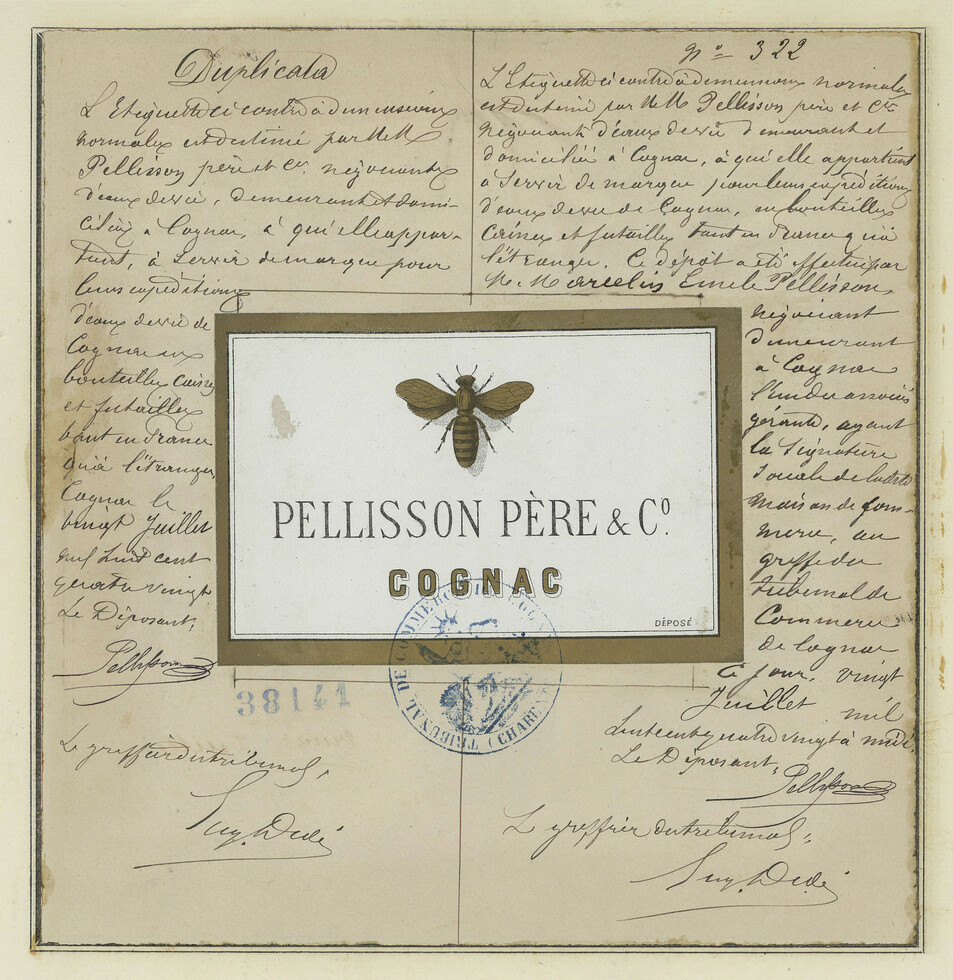 Duplicata
L'Etiquette ci contre à dimensions
normales est destiné par MM
Pellisson père et Cie négociants
d'eaux de vie, demeurant et domi-
ciliés à Cognac, à qui elle appar-
tient, à servir de marque pour
leurs expéditions
d'eaux de vie de
Cognac en
bouteilles caisses
et futailles
tant en France
qu'à l'étranger,
Cognac le
vingt Juillet
mil huit cent
quatre vingt
Le Déposant,
Pellisson
Le greffier du tribunal,
No 322
L'Etiquette ci contre à dimensions normales
est destiné par MM Pellisson père et Cie
négociants d'eaux de vie demeurant et
domiciliés à Cognac, à qui elle appartient
à servir de marque pour leurs expéditions
d'eaux de vie de Cognac, en bouteilles
Caisses et futailles tant en France qu'à
l'étranger. Ce dépôt a été effectué par
M. Marcelin Emile Pellisson,
négociant
demeurant
à Cognac
l'un des associés
gérants, ayant
la signature
sociale de ladite
maison de Com-
merce, au
greffe du
tribunal de
Commerce
de Cognac
Ce jour, vingt
Juillet mil
huit cent quatre vingt à midi,
Le Déposant,
Pellisson
Le greffier du tribunal,
PELLISSON PÈRE & Cº.
COGNAC
DÉPOSÉ
38141
TRIBUNAL DE COMMERCE
(CHARENTE)